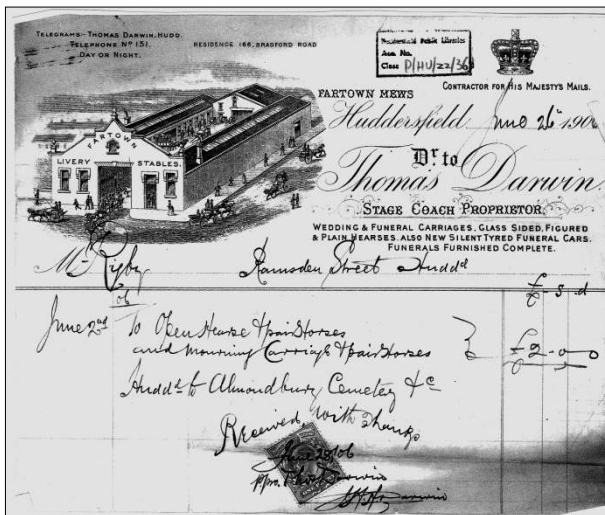 TELEGRAMS:- THOMAS DARWIN, HUDD.
TELEPHONE Nº 151.
DAY OR NIGHT.
RESIDENCE 166, BRADFORD ROAD
Huddersfield Public Libraries
Acc. No.
Class P/HU/22/36
CONTRACTOR FOR HIS MAJESTY'S MAILS.
FARTOWN MEWS
Huddersfield June 26 1906
FARTOWN
LIVERY STABLES.
Dr to
Thomas Darwin.
STAGE COACH PROPRIETOR.
WEDDING & FUNERAL CARRIAGES, GLASS SIDED, FIGURED
& PLAIN HEARSES. ALSO NEW SILENT TYRED FUNERAL CARS.
FUNERALS FURNISHED COMPLETE.
Mr Rigby Ramsden Street Hudd d
£ - s. d
06
June 2nd To Open Hearse & pair Horses
and Mourning Carriage & pair Horses £2-0-0
Hudd d to Almondbury Cemetery & c
Received with Thanks
June 28/06
p.pro. Thos Darwin
Darwin